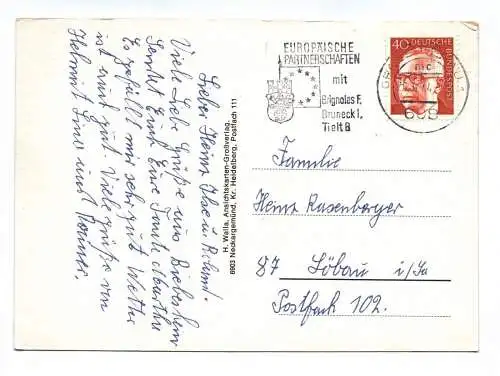 Lieber Heinz, Ilse u. Roland.
Viele Liebe Grüße aus Bieberehren
sendet Euch Eure Tante Martha
Es gefällt mir sehr gut Wetter
ist auch gut. Viele grüße von
Helmut Irma und Rainer.
H. Walla, Ansichtskarten-Großverlag,
6903 Neckargemünd, Kr. Heidelberg, Postfach 111
EUROPÄISCHE
PARTNERSCHAFTEN
mit
Brignoles F.
Bruneck I.
Tielt B
40 DEUTSCHE
BUNDESPOST
Familie
Heinz Rasenberger
87 Löbau i/Sa
Postfach 102.